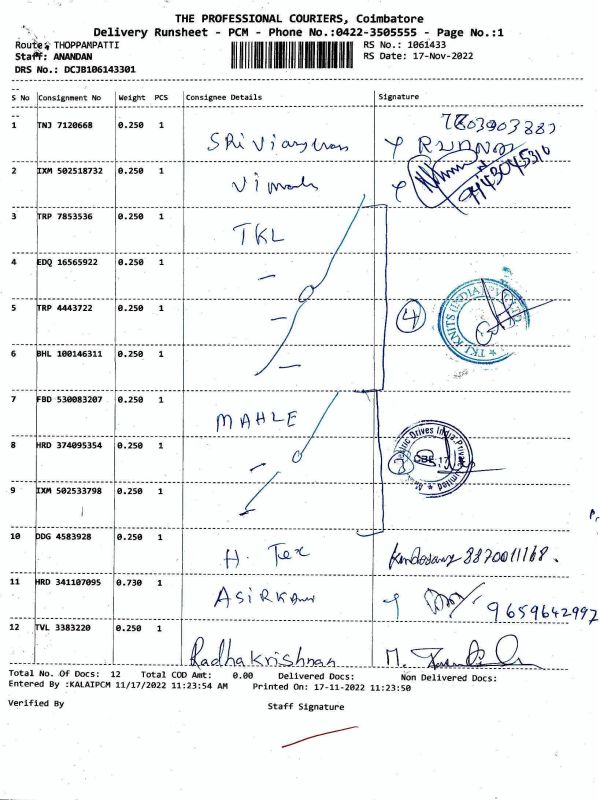 THE PROFESSIONAL COURIERS, Coimbatore
Delivery Runsheet - PCM - Phone No.:0422-3505555 - Page No.:1
Route: THOPPAMPATTI RS No.: 1061433
Staff: ANANDAN RS Date: 17-Nov-2022
DRS No.: DCJB106143301
S No Consignment No Weight PCS Consignee Details Signature
1 TNJ 7120668 0.250 1
2 IXM 502518732 0.250 1 9443045310
3 TRP 7853536 0.250 1 TKL
4 EDQ 16565922 0.250 1 -
5 TRP 4443722 0.250 1 - 4 TKL KNITS (INDIA)
6 BHL 100146311 0.250 1 -
7 FBD 530083207 0.250 1 MAHLE
8 HRD 374095354 0.250 1 3 Drives India Private Limited CBE 17
9 IXM 502533798 0.250 1
10 DDG 4583928 0.250 1 H. Tex 8870011168.
11 HRD 341107095 0.730 1 9659642997
12 TVL 3383220 0.250 1 Radhakrishnan M.
Total No. Of Docs: 12 Total COD Amt: 0.00 Delivered Docs: Non Delivered Docs:
Entered By :KALAIPCM 11/17/2022 11:23:54 AM Printed On: 17-11-2022 11:23:50
Verified By Staff Signature